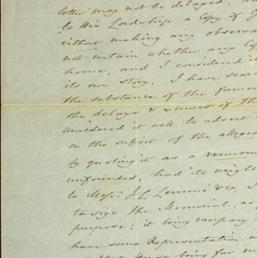 letter may not be delayed, and
to His Lordship a Copy of
either making any observa
not certain whether any Cop
home, and I considered it
its own Story. I have sear
the substance of the
the delays & of the
considered it well to advert
on the subject of the alleged
by quoting it as a rumour
unfounded, had its weight
to Messrs. J. & Co, I
to sign the Memorial, as
purpose; it being
have some Representation
being far